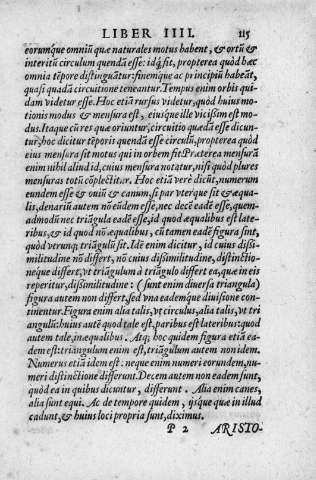 LIBER IIII. 115
eorumque omniũ quæ naturales motus habent, & ortũ &
interitũ circulum quendã esse: idq́; fit, propterea quòd hæc
omnia tẽpore distinguãtur: finemque ac principiũ habeãt,
quasi quadã circuitione teneantur. Tempus enim orbis qui-
dam videtur esse. Hoc etiã rursus videtur, quòd huius mo-
tionis modus & mensura est, eiusque ille vicissim est mo-
dus. Itaque cũ res quæ oriuntur, circuitio quædã esse dicun-
tur, hoc dicitur tẽporis quendã esse circulũ, propterea quòd
eius mensura fit motus qui in orbem fit. Præterea mensurã
enim nihil aliud id, cuius mensura notatur, nisi quòd plures
mensuras totũ cõplectitur. Hoc etiã verè dicit, numerum
eundem esse & ouiũ & canum, si par vterque sit & æqua-
lis, denariũ autem nõ eũdem esse, nec decẽ eadẽ esse, quem-
admodũ nec triãgula eadẽ esse, id quod æqualibus est late-
ribus, & id quod nõ æqualibus, cũ tamen eadẽ figura sint,
quòd verunq; triãgulũ sit. Idẽ enim dicitur, id cuius dissi-
militudine nõ differt, nõ cuius dissimilitudine, distinctio-
neque differt, vt triangulum à triãgulo differt ea, quæ in eis
reperitur, dissimilitudine: (sunt enim diuersa triangula)
figura autem non differt, sed vna eademque diuisione con-
tinentur. Figura enim alia talis, vt circulus, alia talis, vt tri
angulũ: huius autẽ quòd tale est, paribus est lateribus: quod
autem tale, inæqualibus. Atq; hoc quidem figura etiã ea-
dem est: triangulum enim est, triãgulum autem non idem.
Numerus etiã idem est: neque enim numeri eorundem, nu-
meri distinctione differunt. Decem autem non eadem sunt,
quòd ea in quibus dicuntur, differunt. Alia enim canes,
alia sunt equi. Ac de tempore quidem, ijsque quæ in illud
cadunt, & huius loci propria sunt, diximus.
P 2 ARISTO-